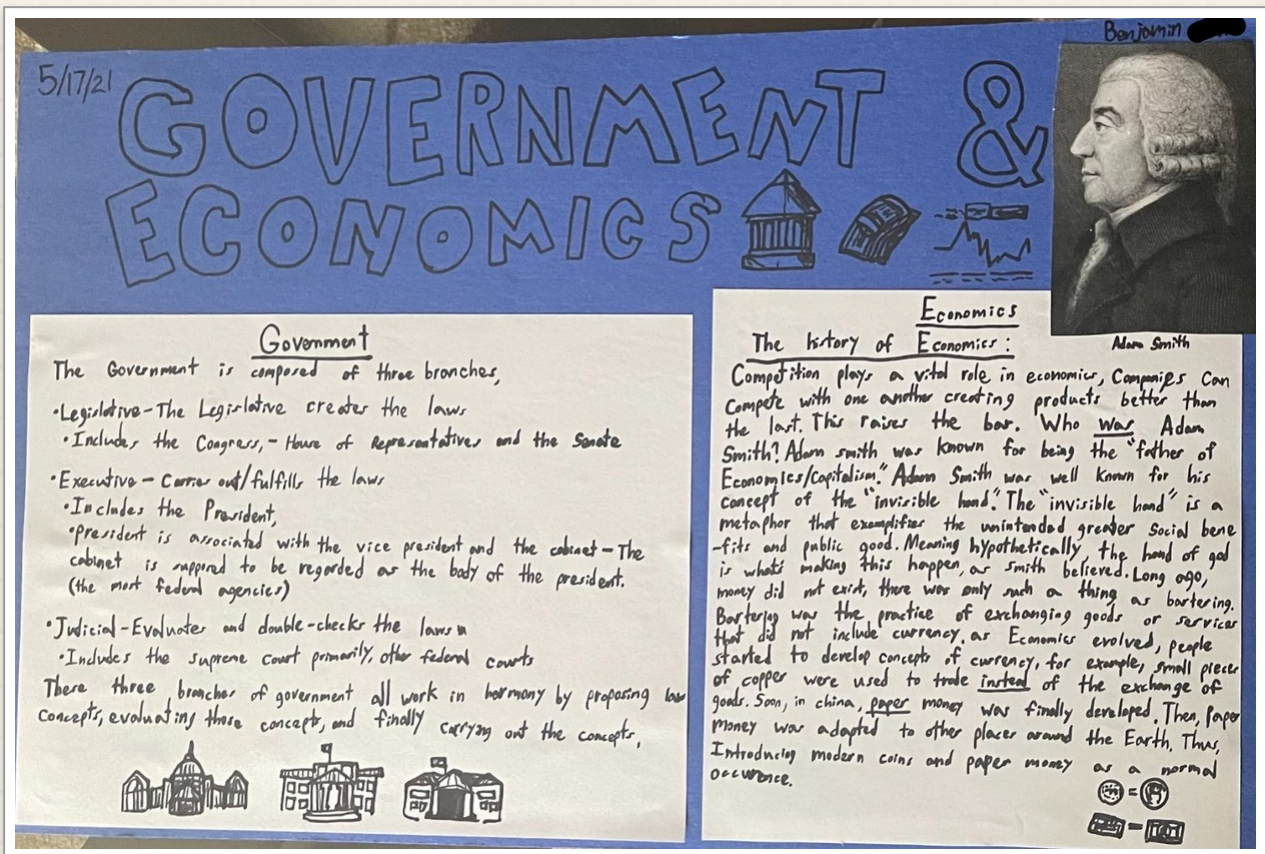 Benjamin
5/17/21
GOVERNMENT &
ECONOMICS
Government
The Government is composed of three branches,
•Legislative-The Legislative creates the laws
•Includes the Congress,- House of Representatives and the Senate
•Executive - Carries out/fulfills the laws
•Includes the President,
•President is associated with the vice president and the cabinet-The
cabinet is supposed to be regarded as the body of the president.
(the most federal agencies)
•Judicial-Evaluates and double-checks the laws
•Includes the supreme court primarily, other federal courts
These three branches of government all work in harmony by proposing law
concepts, evaluating those concepts, and finally carrying out the concepts,
Economics
The history of Economics:
Adam Smith
Competition plays a vital role in economics, Companies Can
Compete with one another creating products better than
the last. This raises the bar. Who was Adam
Smith? Adam smith was known for being the "father of
Economics/Capitalism." Adam Smith was well known for his
concept of the "invisible hand". The "invisible hand" is a
metaphor that exemplifies the unintended greater Social bene
-fits and public good. Meaning hypothetically, the hand of god
is what's making this happen, as smith believed. Long ago,
money did not exist, there was only such a thing as bartering.
Bartering was the practice of exchanging goods or services
that did not include currency. as Economics evolved, people
started to develop concepts of currency, for example, small pieces
of copper were used to trade instead of the exchange of
goods. Soon, in china, paper money was finally developed. Then, Paper
money was adapted to other places around the Earth. Thus,
Introducing modern coins and paper money as a normal
occurence.